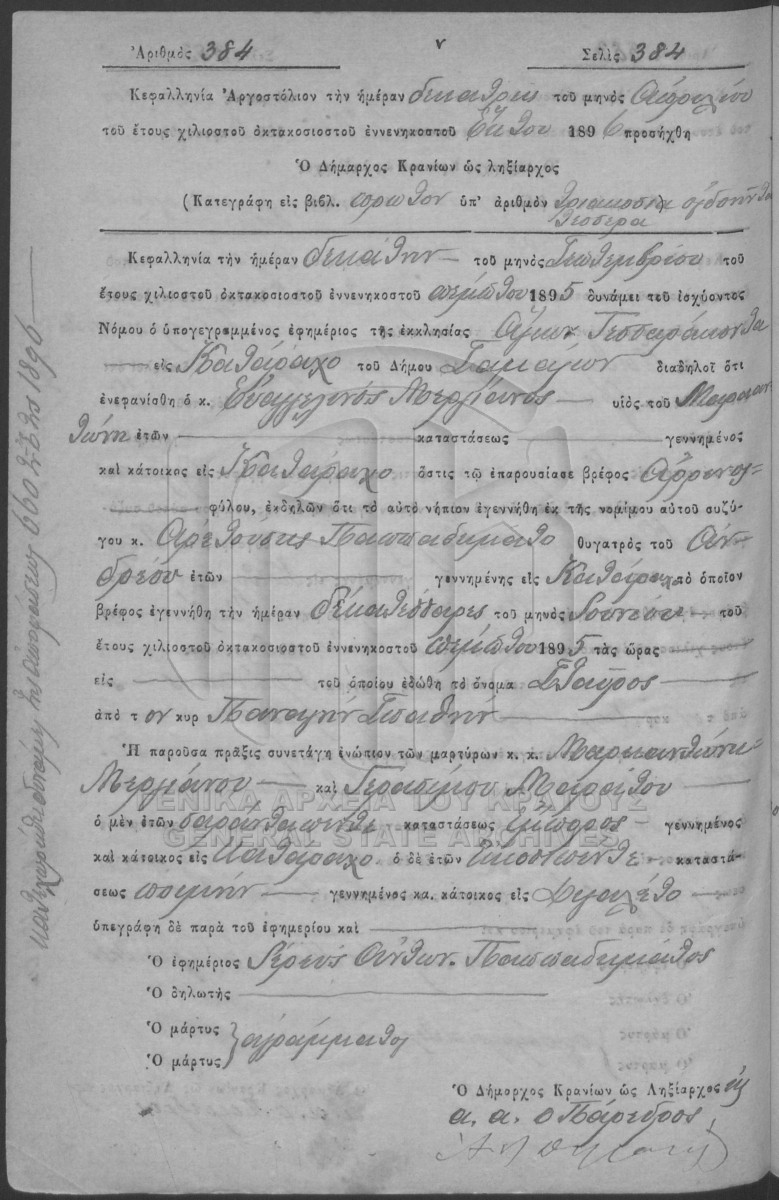 Ἀριθμὸς 384 Σελὶς 384
Κεφαλληνία Ἀργοστόλιον τὴν ἡμέραν δεκατρεις τοῦ μηνὸς Απριλίου
τοῦ ἔτους χιλιοστοῦ ὀκτακοσιοστοῦ ἐννενηκοστοῦ Εκτου 1896 προσήχθη
Ὁ Δήμαρχος Κρανίων ὡς ληξίαρχος
(Κατεγράφη εἰς βιβλ. πρωτον ὑπ' ἀριθμὸν τριακοσια ογδοηντα
τεσσερα)
Κεφαλληνία τὴν ἡμέραν δεκάτην τοῦ μηνὸς Σεπτεμβρίου τοῦ
ἔτους χιλιοστοῦ ὀκτακοσιοστοῦ ἐννενηκοστοῦ πεμπτου 1895 δυνάμει τοῦ ἰσχύοντος
Νόμου ὁ ὑπογεγραμμένος ἐφημέριος τῆς ἐκκλησίας Αγιων Τεσσαράκοντα
εἰς Καταραχο τοῦ Δήμου Σαμαίων διαδηλοῖ ὅτι
ἐνεφανίσθη ὁ κ. Ευαγγελινός Μεργιάνος υἱὸς τοῦ Μαρκαν
τώνη ἐτῶν καταστάσεως γεννημένος
καὶ κάτοικος εἰς Καταραχο ὅστις τῷ ἐπαρουσίασε βρέφος αρρενος
φύλου, ἐκδηλῶν ὅτι τὸ αὐτὸ νήπιον ἐγεννήθη ἐκ τῆς νομίμου αὐτοῦ συζύ-
γου κ. Αρεθούσης Παππαδημάτο θυγατρὸς τοῦ Αν-
δρέου ἐτῶν γεννημένης εἰς Καταραχο τὸ ὁποῖον
βρέφος ἐγεννήθη τὴν ἡμέραν δεκατέσσαρες τοῦ μηνὸς Ιουνίου τοῦ
ἔτους χιλιοστοῦ ὀκτακοσιοστοῦ ἐννενηκοστοῦ πεμπτου 1895 τὰς ὥρας
εἰς τοῦ ὁποίου ἐδώθη τὸ ὄνομα Σταῦρος
ἀπὸ τ ον κυρ Παναγήν Σπαθήν
Ἡ παροῦσα πρᾶξις συνετάγη ἐνώπιον τῶν μαρτύρων κ. κ. Μαρκαντώνη
Μεργιάνου καὶ Γερασίμου Μαράτου
ὁ μὲν ἐτῶν σαράνταπεντε καταστάσεως έμπορος γεννημένος
καὶ κάτοικος εἰς Καταραχο ὁ δὲ ἐτῶν Εικοσιπεντε καταστά-
σεως ποιμην γεννημένος κα. κάτοικος εἰς
ὑπεγράφη δὲ παρὰ τοῦ ἐφημερίου καὶ
Ὁ ἐφημέριος Ιερευς Αντων. Παππαδημάτος
Ὁ δηλωτής
Ὁ μάρτυς
Ὁ μάρτυς } αγράμματοι
Ὁ Δήμαρχος Κρανίων ὡς Ληξίαρχος
α. α. ο Πάρεδρος
καταχωρήθη δυνάμη της αποφάσεως 660 της 1896
ΓΕΝΙΚΑ ΑΡΧΕΙΑ ΤΟΥ ΚΡΑΤΟΥΣ
GENERAL STATE ARCHIVES